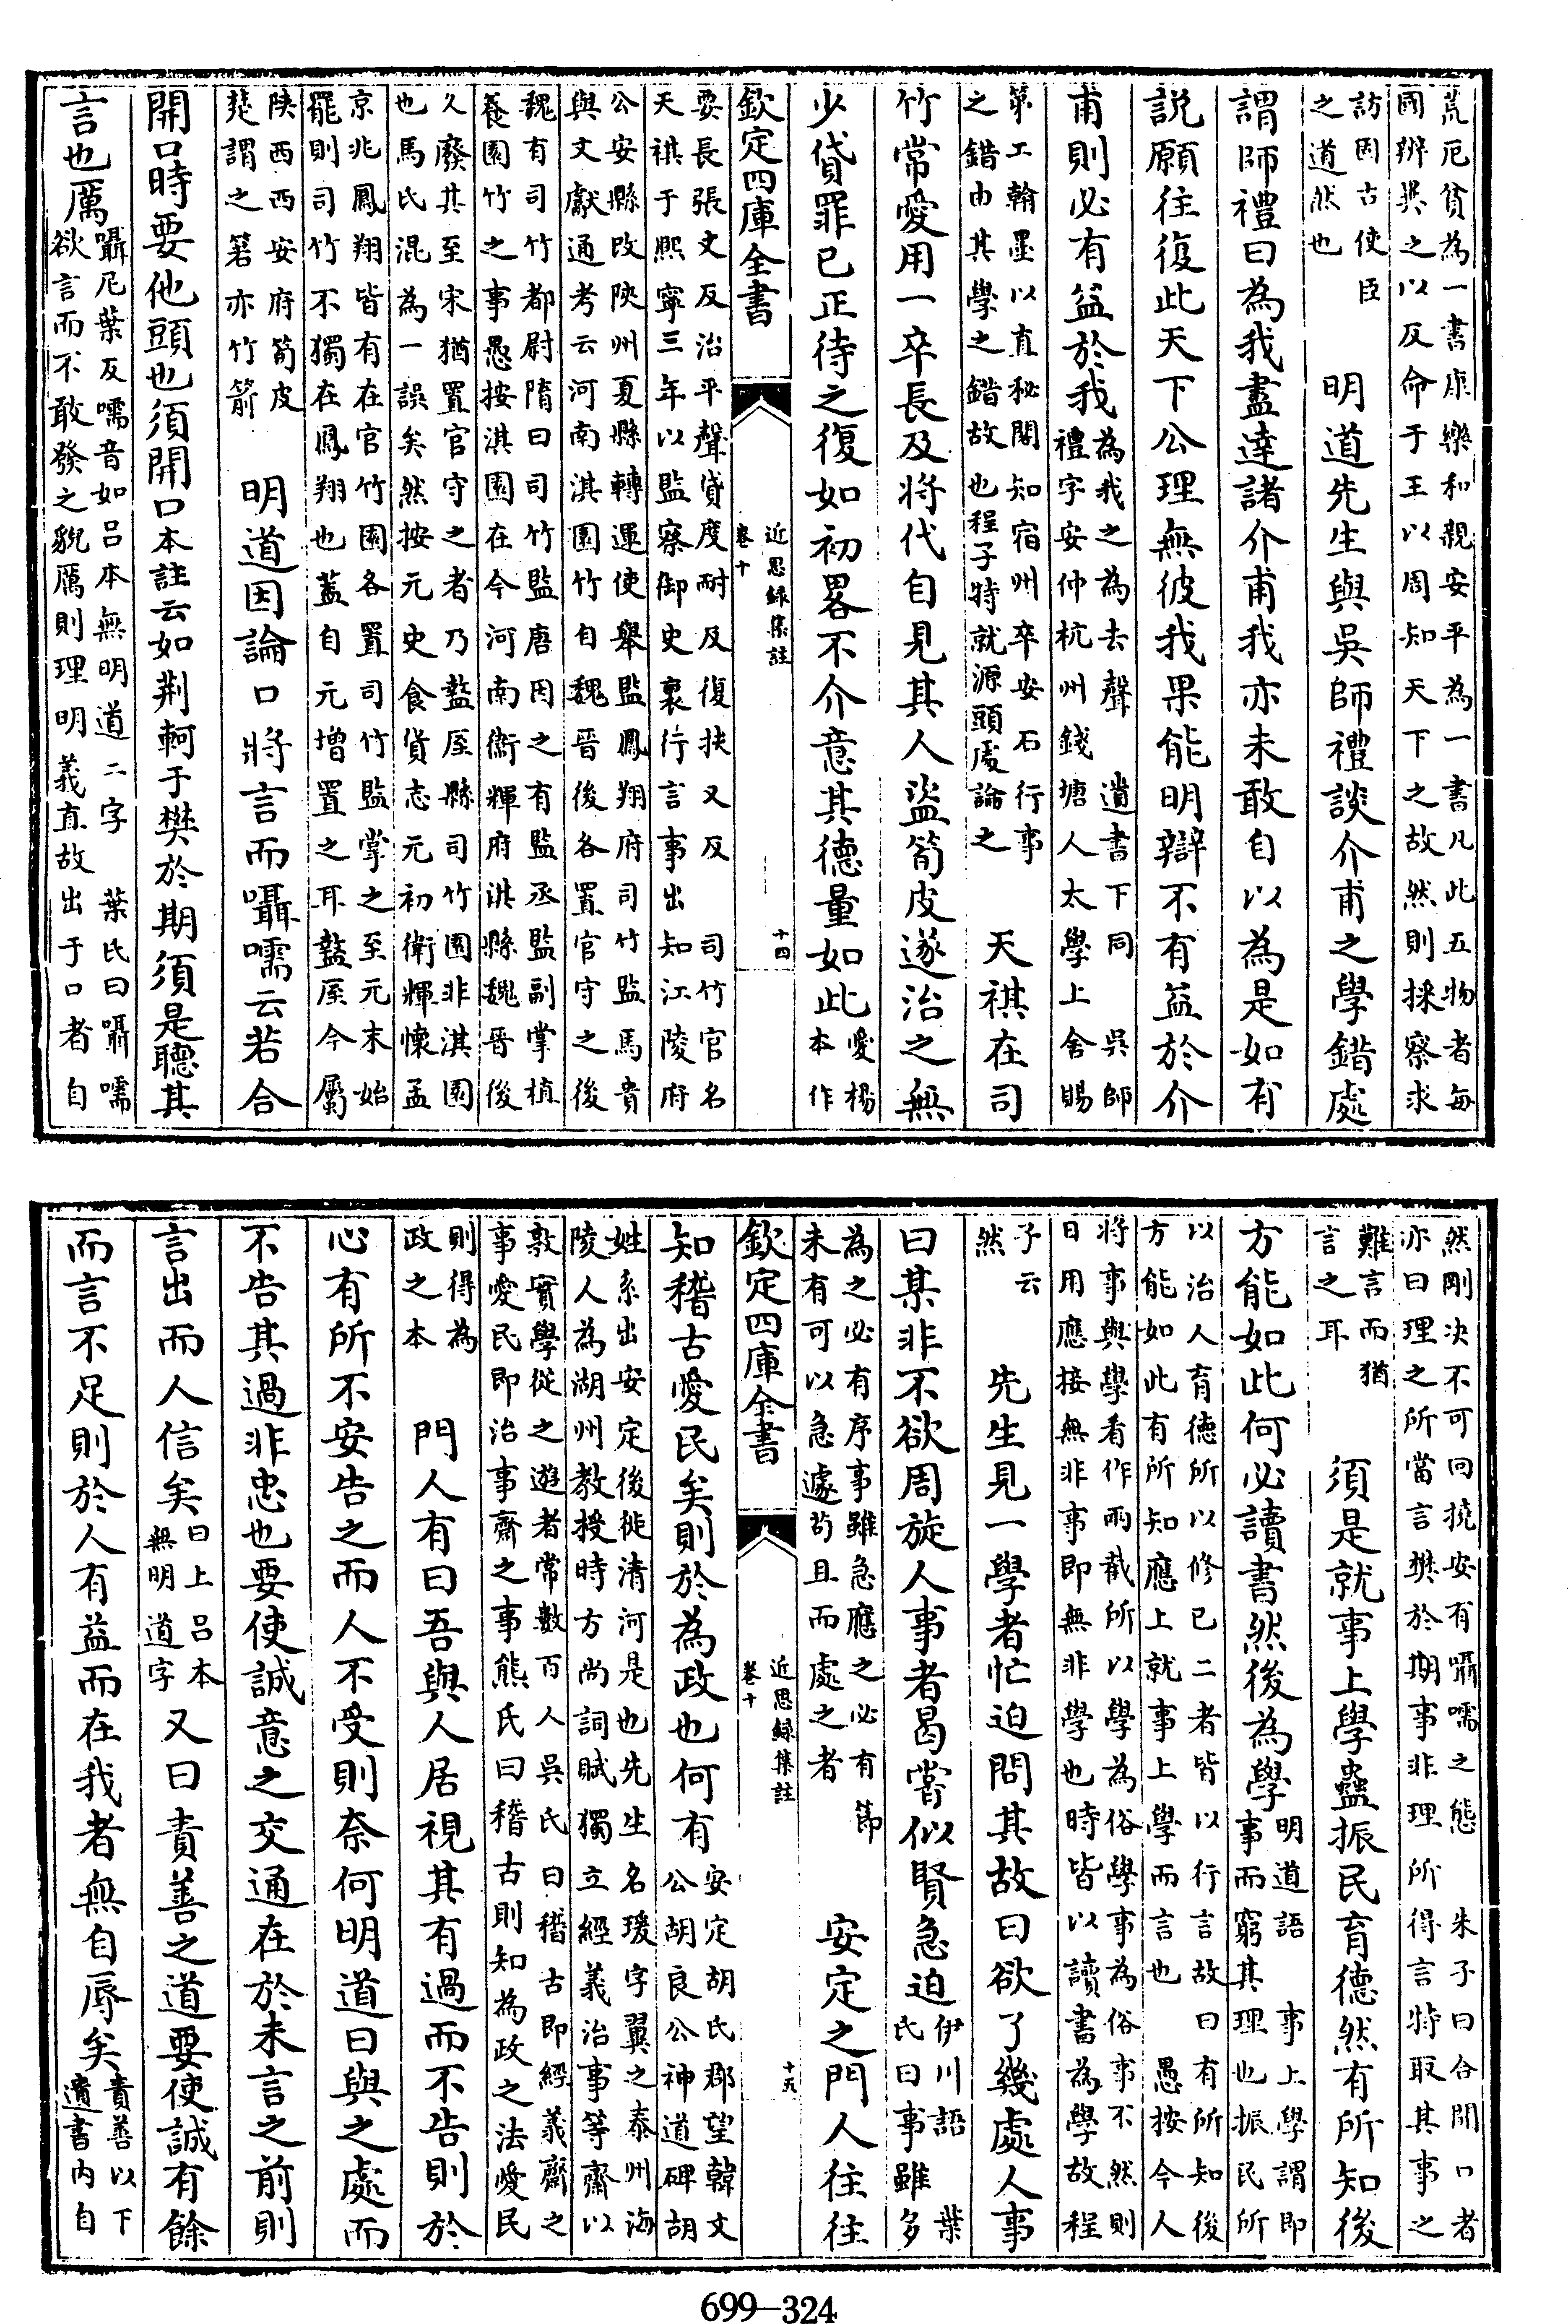 荒厄貧為一書康樂和親安平為一書凡此五物者每
國辨異之以反命于王以周知天下之故然則採察求
訪固古使臣
之道然也
明道先生與吳師禮談介甫之學錯處
謂師禮曰為我盡達諸介甫我亦未敢自以為是如有
說願往復此天下公理無彼我果能明辯不有益於介
甫則必有益於我
為我之為去聲 遺書下同 吳師
禮字安仲杭州錢塘人太學上舍賜
第工翰墨以直秘閣知宿州卒安石行事
之錯由其學之錯故也程子特就源頭處論之
天祺在司
竹常愛用一卒長及將代自見其人盜筍皮遂治之無
少貸罪已正待之復如初畧不介意其德量如此
愛楊
本作
欽定四庫全書
近思錄集註
卷十
十四
要長張丈反治平聲貸度耐反復扶又反 司竹官名
天祺于熙寧三年以監察御史裏行言事出知江陵府
公安縣改陝州夏縣轉運使舉監鳳翔府司竹監馬貴
與文獻通考云河南淇園竹自魏晉後各置官守之後
魏有司竹都尉隋曰司竹監唐因之有監丞監副掌植
養園竹之事愚按淇園在今河南衞輝府淇縣魏晉後
久廢其至宋猶置官守之者乃盩厔縣司竹園非淇園
也馬氏混為一誤矣然按元史食貨志元初衛輝懷孟
京兆鳳翔皆有在官竹園各置司竹監掌之至元末始
罷則司竹不獨在鳳翔也蓋自元增置之耳盩厔今屬
陝西西安府筍皮
楚謂之箬亦竹箭
明道因論口將言而囁嚅云若合
開口時要他頭也須開口本註云如荆軻于樊於期須是聽其
言也厲
囁尼葉反嚅音如呂本無明道二字 葉氏曰囁嚅
欲言而不敢發之貌厲則理明義直故出于口者自
然剛决不可回撓安有囁嚅之態 朱子曰合開口者
亦曰理之所當言樊於期事非理所得言特取其事之
難言而猶
言之耳
須是就事上學蠱振民育德然有所知後
方能如此何必讀書然後為學
明道語 事上學謂即
事而窮其理也振民所
以治人育德所以修已二者皆以行言故曰有所知後
方能如此有所知應上就事上學而言也 愚按今人
將事與學看作兩截所以學為俗學事為俗事不然則
日用應接無非事即無非學也時皆以讀書為學故程
子云
然
先生見一學者忙迫問其故曰欲了幾處人事
曰某非不欲周旋人事者曷嘗似賢急迫
伊川語 葉
氏曰事雖多
為之必有序事雖急應之必有節
未有可以急遽苟且而處之者
安定之門人往往
欽定四庫全書
近思錄集註
卷十
十五
知稽古愛民矣則於為政也何有
安定胡氏郡望韓文
公胡良公神道碑胡
姓系出安定後徙清河是也先生名瑗字翼之泰州海
陵人為湖州教授時方尚詞賦獨立經義治事等齋以
敦實學從之遊者常數百人吳氏曰稽古即經義齋之
事愛民即治事齋之事熊氏曰稽古則知為政之法愛民
則得為
政之本
門人有曰吾與人居視其有過而不告則於
心有所不安告之而人不受則奈何明道曰與之處而
不告其過非忠也要使誠意之交通在於未言之前則
言出而人信矣
曰上呂本
無明道字
又曰責善之道要使誠有餘
而言不足則於人有益而在我者無自辱矣
責善以下
遺書內自
699—324